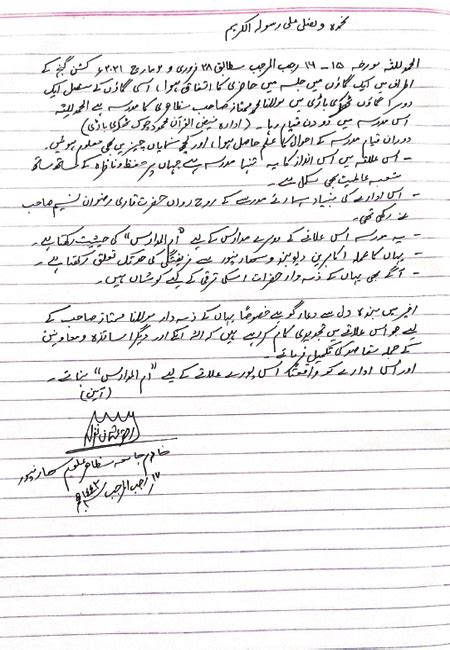 نحمدہ و نصلی علی رسولہ الکریم
الحمد للہ مورخہ ۱۵ - ۱۶ رجب المرجب مطابق ۲۸ فروری و مارچ ۲۰۲۱ء کشن گنج کے
اطراف میں ایک گاؤں میں جلسہ میں حاضری کا اتفاق ہوا، اسی گاؤں کے متصل ایک
دوسرا گاؤں میں مولانا محمد ممتاز صاحب مظاہری کا مدرسہ ہے الحمد للہ
اس مدرسہ میں دو دن قیام رہا۔ (ادارہ فیض القرآن محمود چوک)
دوران قیام مدرسہ کے احوال کا علم حاصل ہوا، اور کچھ نمایاں چیزیں بھی معلوم ہوئیں۔
- اس علاقہ میں اس انداز کا یہ تنہا مدرسہ ہے جہاں پر حفظ و ناظرہ کے ساتھ ساتھ
شعبہ عالمیت بھی مکمل ہے۔
- اس ادارے کی بنیاد ہمارے مدرسے کے روح رواں حضرت قاری رضوان نسیم صاحب
نے رکھی تھی۔
- یہ مدرسہ اس علاقے کے دوسرے مدارس کے لیے "ام المدارس" کی حیثیت رکھتا ہے۔
- یہاں کا عملہ اکابرین دیوبند و سہارنپور سے فریفتگی کی حد تک تعلق رکھتا ہے۔
- آگے بھی یہاں کے ذمہ دار حضرات اسکی ترقی کے لیے کوشاں ہیں۔
اخیر میں بندہ دل سے دعا گو ہے خصوصاً یہاں کے ذمہ دار مولانا ممتاز صاحب کے
لیے جو اس علاقے میں تجدیدی کام کر رہے ہیں کہ اللہ انکے اور دیگر اساتذہ و معاونین
کے جملہ مقاصد کی تکمیل فرمائے۔
اور اس ادارے کو واقعتاً اس پورے علاقے کے لیے "ام المدارس" بنائے۔
(آمین)
خادم جامعہ مظاہر علوم سہارنپور
۱۶ رجب المرجب ۱۴۴۲ھ